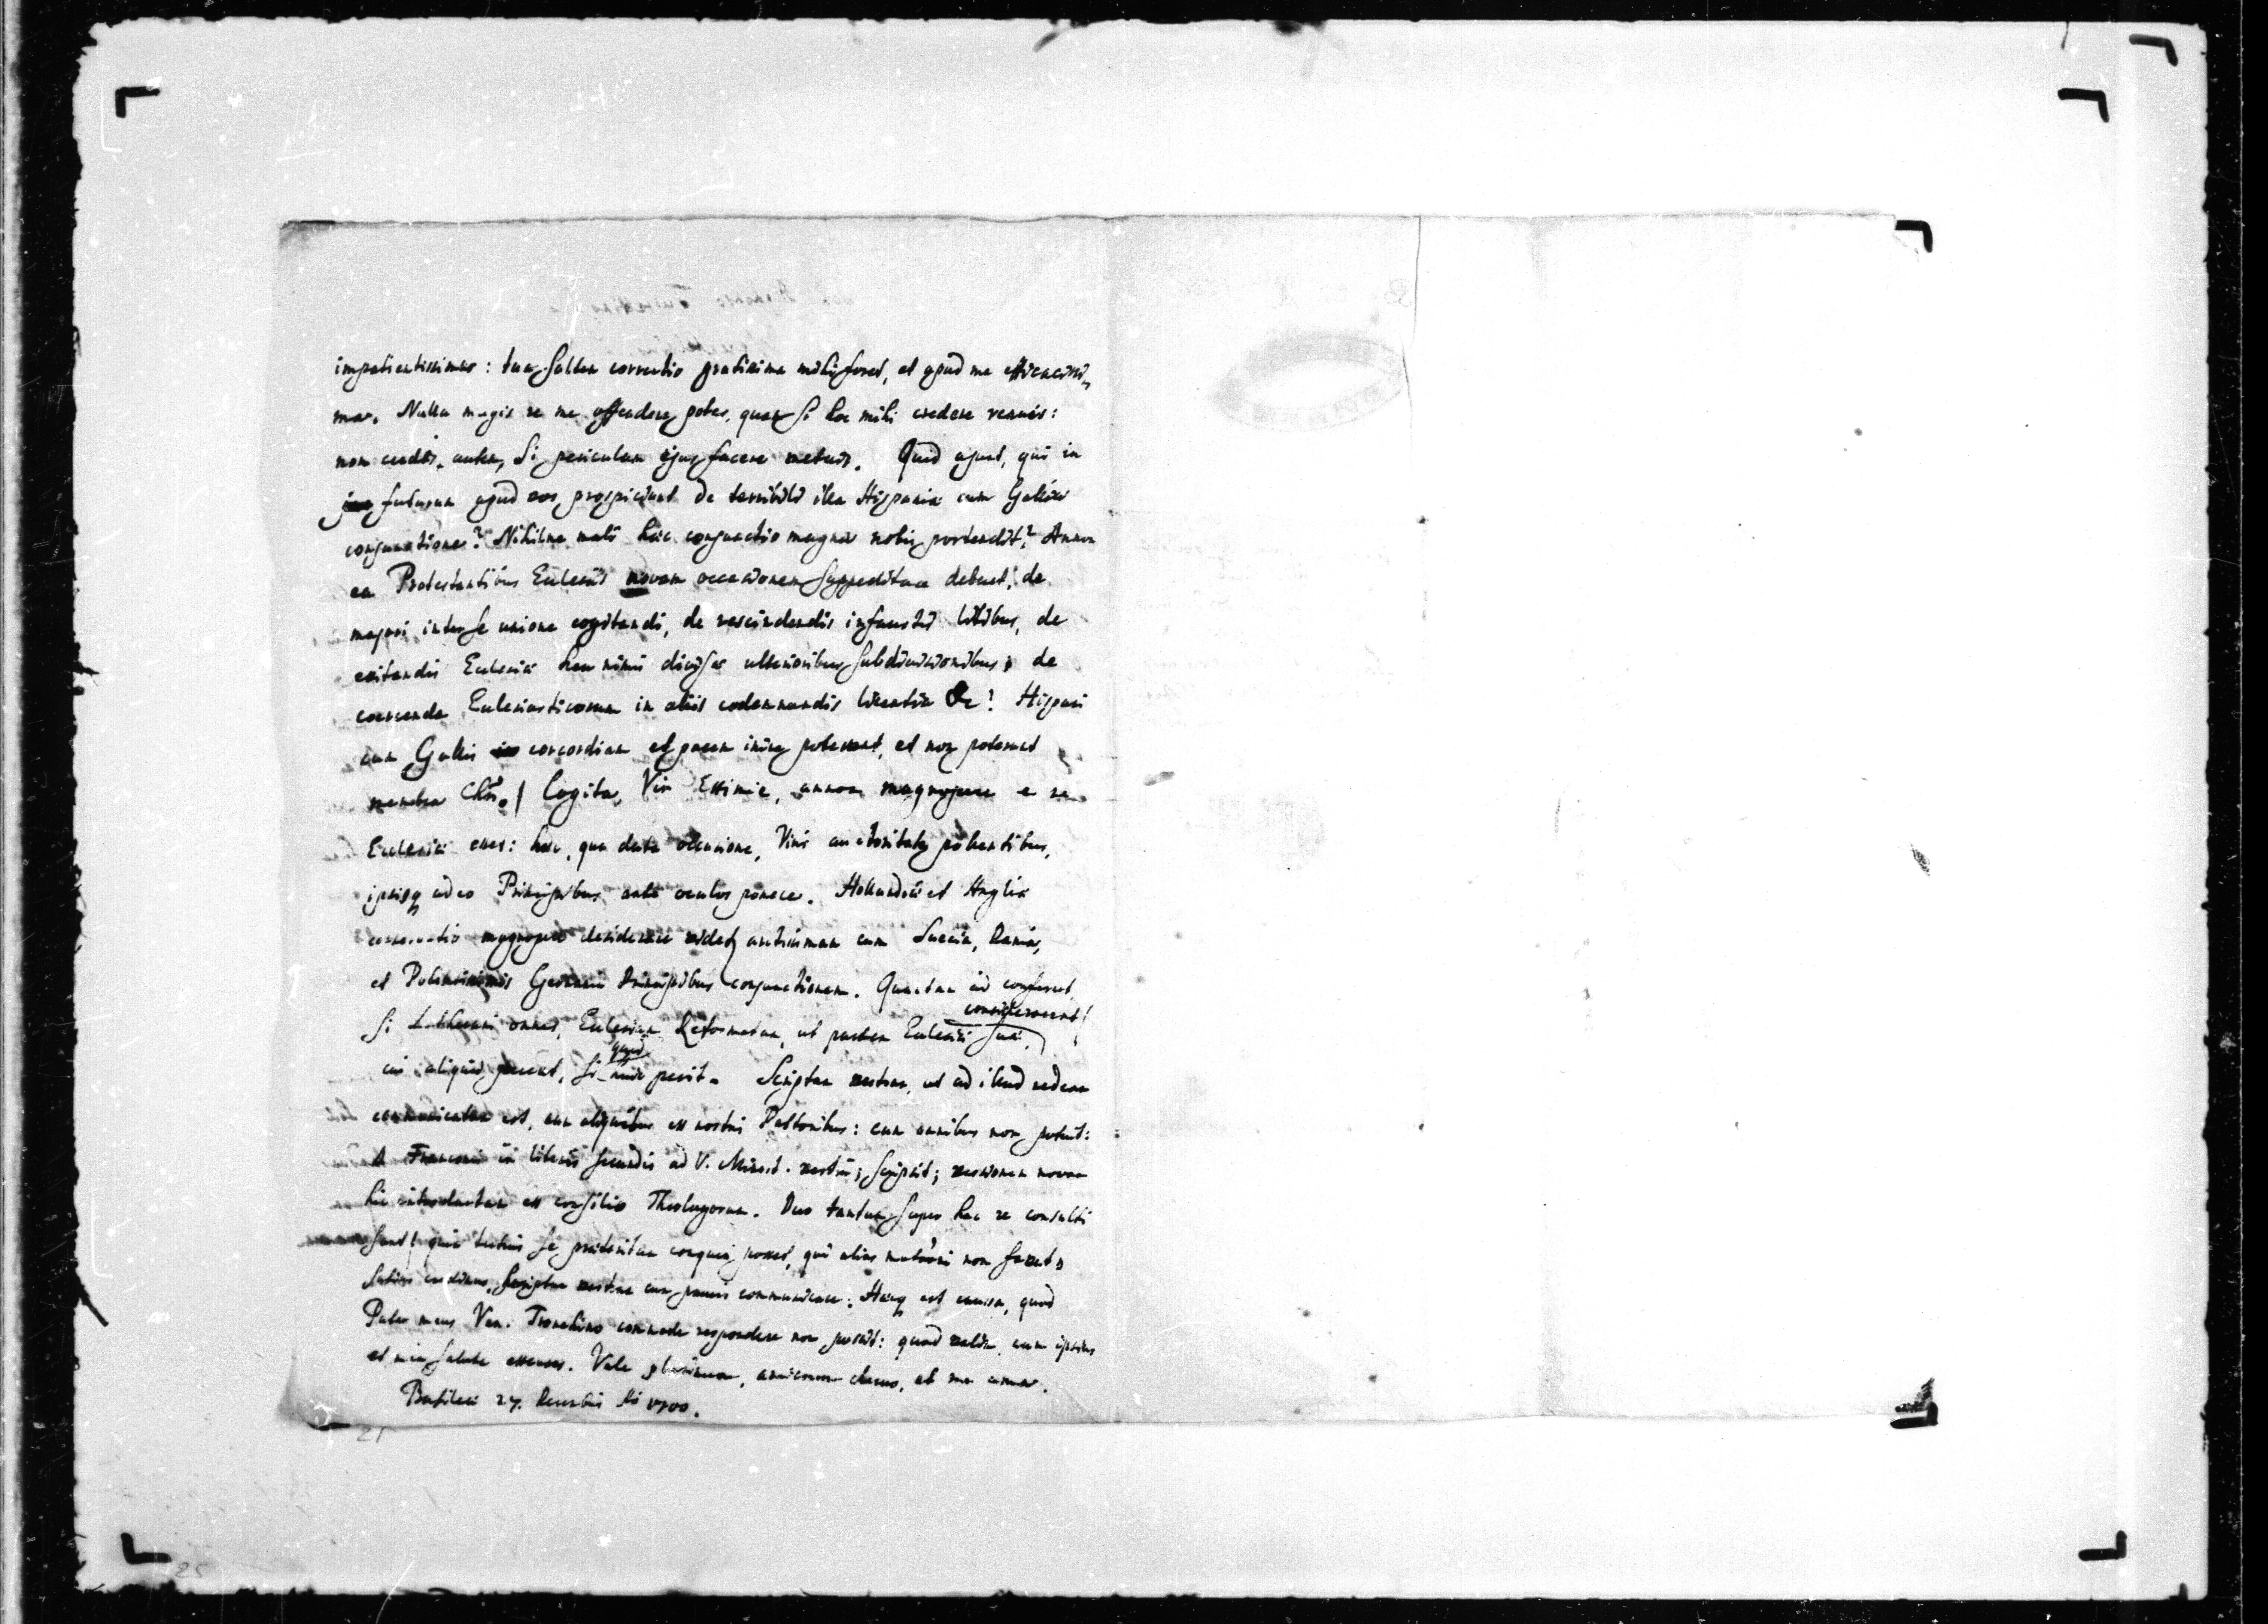 impatientissimus: tua saltem correctio gratissima mihi foret, et apud me efficacissi-
ma. Nulla magis re me offendere potes, quam si hoc mihi credere renuis:
non credis autem, si periculum ejus facere metuis. Quid ajunt, qui in
futurum apud vos prospiciunt de terribili illa Hispaniæ cum Gallia
conjunctione? Nihilne mali hæc conjunctio magna nobis portendit? Annon
ea Protestantibus Ecclesiis novam occasionem suppeditare debuet, de
majori inter se unione cogitandi, de rescindendis infaustis litibus, de
evitandis Ecclesiæ heu nimis divisæ ulterioribus subdivisionibus, de
coercenda Ecclesiasticorum in aliis condemnandis licentia &c? Hispani
cum Gallis concordiam et pacem inire poterunt, et non poterunt
membra Chri.! Cogita, Vir Eximie, annon magnopere e re
Ecclesiæ esset: hæc, qua data occasione, Viris auctoritate pollentibus,
ipsisq adeo Principibus ante oculos ponere. Hollandiæ et Angliæ
conservatio magnopere desiderare videt arctissimam cum Suecia, Dania,
et Potentissimis Germaniæ Principibus conjunctionem. Quantum id conferret,
considerarent
si Lutherani omnes, Ecclesiam Reformatam, ut partem Ecclesiæ suæ,
quid
cui aliquid perit, si perit. Scriptum vestrum, ut ad illud redeam
communicatum est, cum aliquibus ex nostris Pastoribus: cum omnibus non potuit:
in literis secundis ad V. Minist. vestrum scripsit; versionem novam
hic introductam ex consilio Theologorum. Duo tantum super hac re consulti
sunt! quia tertius se præteritum conqueri posset, qui alias mutari non
Satius credimus, scriptum vestrum cum paucis communicare. Hæcq est causa, quod
Pater meus Ven. Tronchino commode respondere non possit: quod velim cum ipsius
et mea salute excuses. Vale plurimum, amicorum charis, et me ama.
Basileæ 27. Decembris 1700.